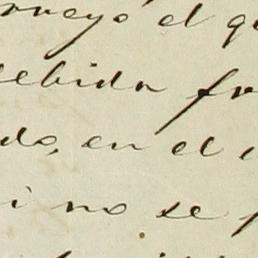 rroyo el q
debida fr
do, en el
i no se p